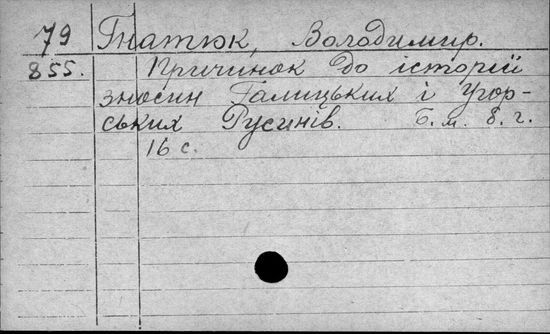 79 Гнатюк, Володимир.
855. Причинок до історії
зносин Галицьких і Угор-
ських Русинів. Б. м. б. г.
16 с.